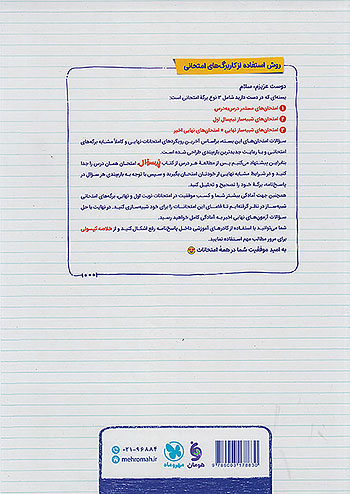 روش استفاده از کاربرگ‌های امتحانی
دوست عزیزم، سلام
بسته‌ای که در دست دارید شامل ۳ نوع برگهٔ امتحانی است:
۱ امتحان‌های مستمر درس‌به‌درس
۲ امتحان‌های شبیه‌ساز نیمسال اول
۳ امتحان‌های شبیه‌ساز نهایی + امتحان‌های نهایی اخیر
سؤالات امتحان‌های این بسته براساس آخرین رویکردهای امتحانات نهایی و کاملاً مشابه برگه‌های
امتحانی و با رعایت جدیدترین بارم‌بندی طراحی شده است.
بنابراین پیشنهاد می‌کنیم پس از مطالعهٔ هر درس از کتاب، امتحان همان درس را جدا
کنید و در شرایط مشابه نهایی از خودتان امتحان بگیرید و سپس با توجه به بارم‌بندی هر سؤال در
پاسخ‌نامه، برگهٔ خود را تصحیح و تحلیل کنید.
همچنین جهت آمادگی بیشتر شما و کسب موفقیت در امتحانات نوبت اول و نهایی، برگه‌های امتحانی
شبیه‌ساز در نظر گرفته‌ایم تا فضای این امتحانات را برای خود شبیه‌سازی کنید. در نهایت با حل
سؤالات آزمون‌های نهایی اخیر به آمادگی کامل خواهید رسید.
شما می‌توانید با استفاده از کادرهای آموزشی داخل پاسخ‌نامه رفع اشکال کنید و از خلاصه کپسولی
برای مرور مطالب مهم استفاده نمایید.
به امید موفقیت شما در همهٔ امتحانات
۰۲۱-۹۶۸۸۴
mehromah.ir
مهروماه
هومان